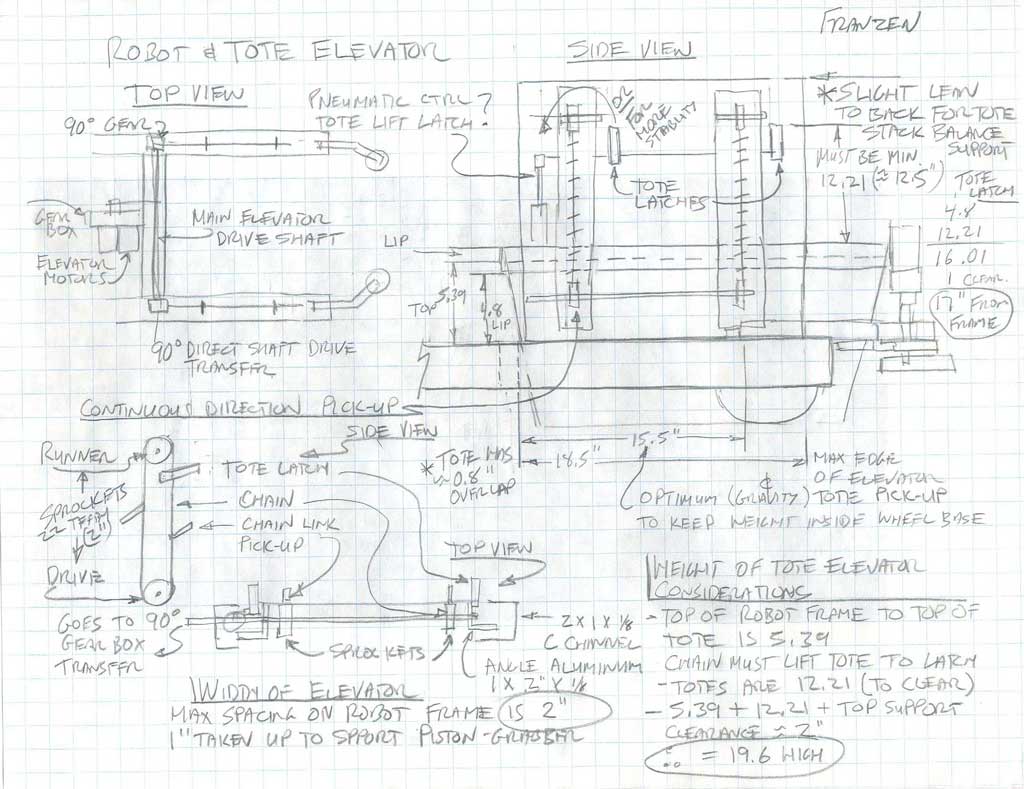 FRANZEN
ROBOT & TOTE ELEVATOR
SIDE VIEW
TOP VIEW
90° GEAR?
PNEUMATIC CTRL?
TOTE LIFT LATCH?
OR
FOR
MORE
STABLITY
*SLIGHT LEAN
TO BACK FOR TOTE
STACK BALANCE
SUPPORT
MUST BE MIN.
12.21 (≈ 12.5")
TOTE
LATCH
4.8
12.21
16.01
1 CLEAR.
17" FROM
FRAME
TOTE
LATCHES
GEAR
BOX
MAIN ELEVATOR
DRIVE SHAFT
ELEVATOR
MOTORS
LIP
TOP
5.39
4.8
LIP
90° DIRECT SHAFT DRIVE
TRANSFER
CONTINUOUS DIRECTION PICK-UP
SIDE VIEW
RUNNER
TOTE LATCH
SPROCKETS
22 TEETH
(2")
CHAIN
CHAIN LINK
PICK-UP
DRIVE
* TOTE HAS
≈0.8"
OVERLAP
15.5"
18.5"
MAX EDGE
OF ELEVATOR
TOTE PICK-UP
OPTIMUM (GRAVITY) ¢
TO KEEP WEIGHT INSIDE WHEEL BASE
TOP VIEW
GOES TO 90°
GEAR BOX
TRANSFER
SPROCKETS
2 X 1 X 1/8
C CHANNEL
ANGLE ALUMINUM
1 X 2" X 1/8
WIDDY OF ELEVATOR
MAX SPACING ON ROBOT FRAME IS 2"
1" TAKEN UP TO SPPORT PISTON-GRABBER
HEIGHT OF TOTE ELEVATOR
CONSIDERATIONS
- TOP OF ROBOT FRAME TO TOP OF
TOTE IS 5.39
CHAIN MUST LIFT TOTE TO LATCH
- TOTES ARE 12.21 (TO CLEAR)
- 5.39 + 12.21 + TOP SUPPORT
CLEARANCE ≈ 2"
∴ = 19.6 HIGH